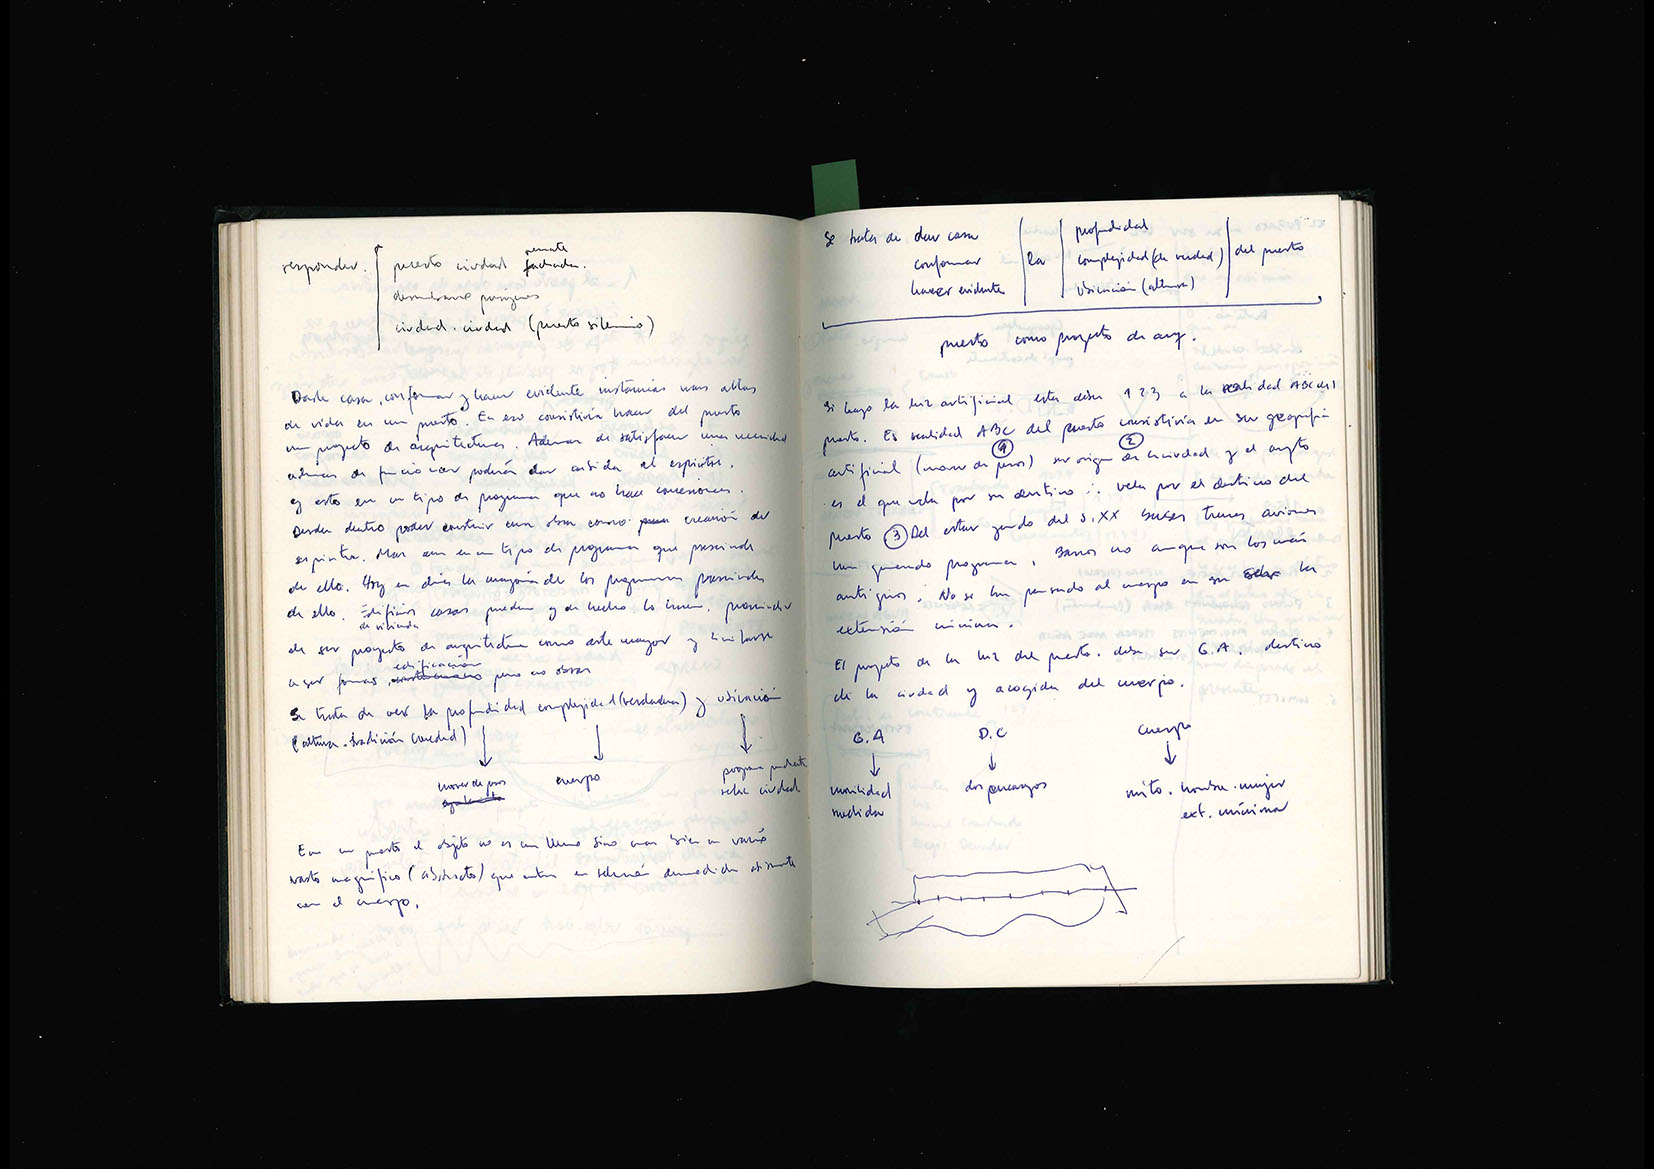 responder.
puerto ciudad remate fachada.
ciudad. ciudad (puerto silencio)
Darle casa, conformar y hacer evidente instancias mas altas
de vida en un puerto. En eso consistiria hacer del puerto
un proyecto de arquitectura. Ademas de satisfacer una necesidad
ademas de funcionar podrán dar cabida al espiritu.
y esto en un tipo de programa que no hace concesiones.
Desde dentro poder construir una obra como creación del
espiritu. Mas aun en un tipo de programa que prescinde
de ello. Hoy en dia la mayoria de los programas prescinden
de ello. Edificios de vivienda casas pueden y de hecho lo hacen. prescindir
de ser proyecto de arquitectura como arte mayor y limitarse
a ser formas, edificacion pero no obras
Se trata de ver la profundidad complejidad (verdadera) y ubicación
(altura. tradición ciudad)
cuerpo
programa
ciudad
En un puerto el objeto no es un lleno sino mas bien un vacio
vasto magnifico (abstracto) que entra en relación
con el cuerpo.
Se trata de dar casa
conformar
hacer evidente
la
profundidad
complejidad (de verdad)
ubicación (altura)
del puerto
puerto como proyecto de arq.
Si hago la luz artificial esta debe 1 2 3 a la realidad ABC del
puerto. Es realidad ABC del puerto consistiria en su geografia
artificial (mover de pesos) 1 su origen de ciudad 2 y el
es el que vela por su destino ∴ vela por el destino del
puerto 3 Del estar del S. XX buses trenes aviones
programa, barcos no aunque son los más
antiguos. No se ha pensado al cuerpo en su la
extensión minima.
El proyecto de la luz del puerto. debe ser G.A. destino
de la ciudad y acogida del cuerpo.
G.A
D.C
cuerpo
movilidad
medida
mito. hombre. mujer
ext. mínima